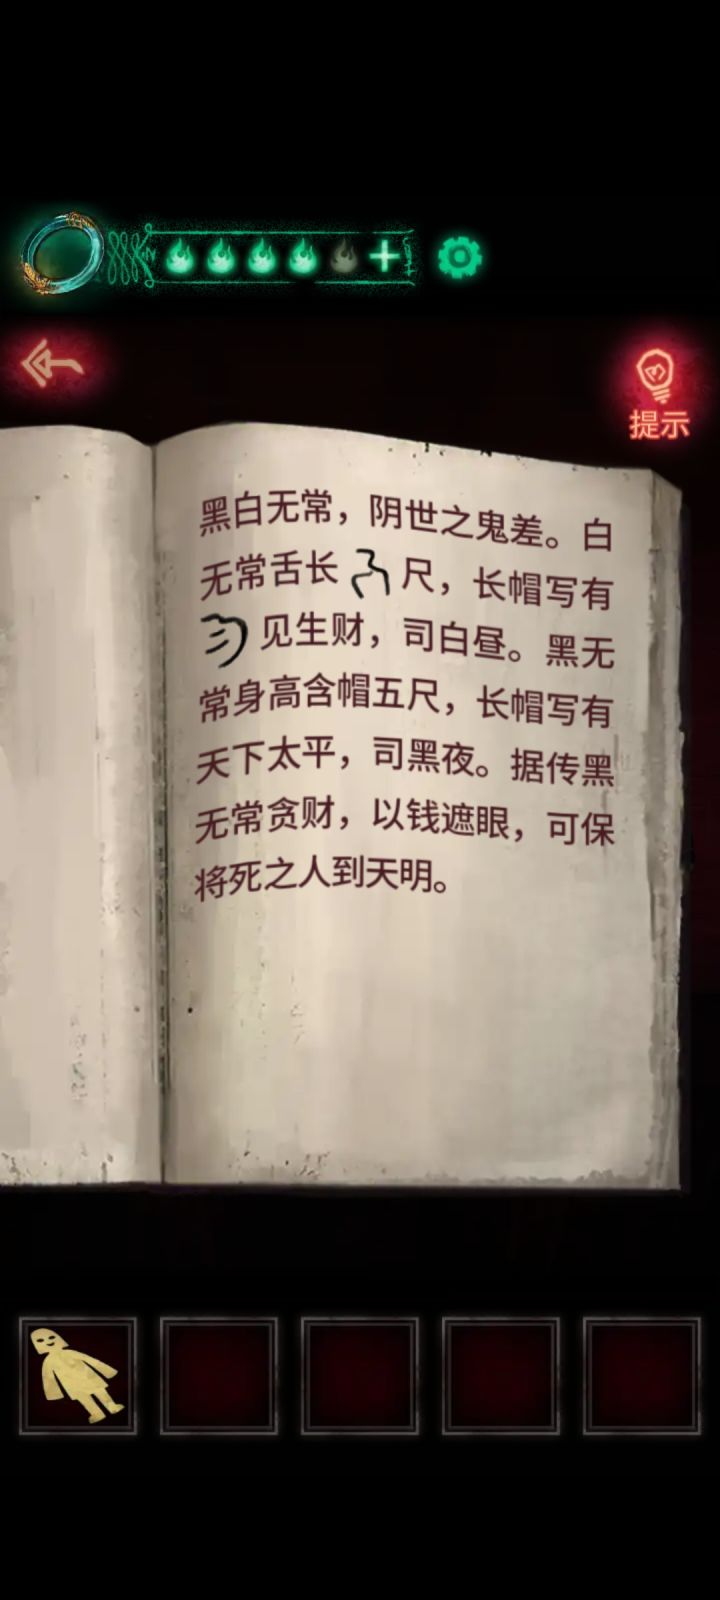 提示
黑白无常，阴世之鬼差。白
无常舌长尺，长帽写有
见生财，司白昼。黑无
常身高含帽五尺，长帽写有
天下太平，司黑夜。据传黑
无常贪财，以钱遮眼，可保
将死之人到天明。